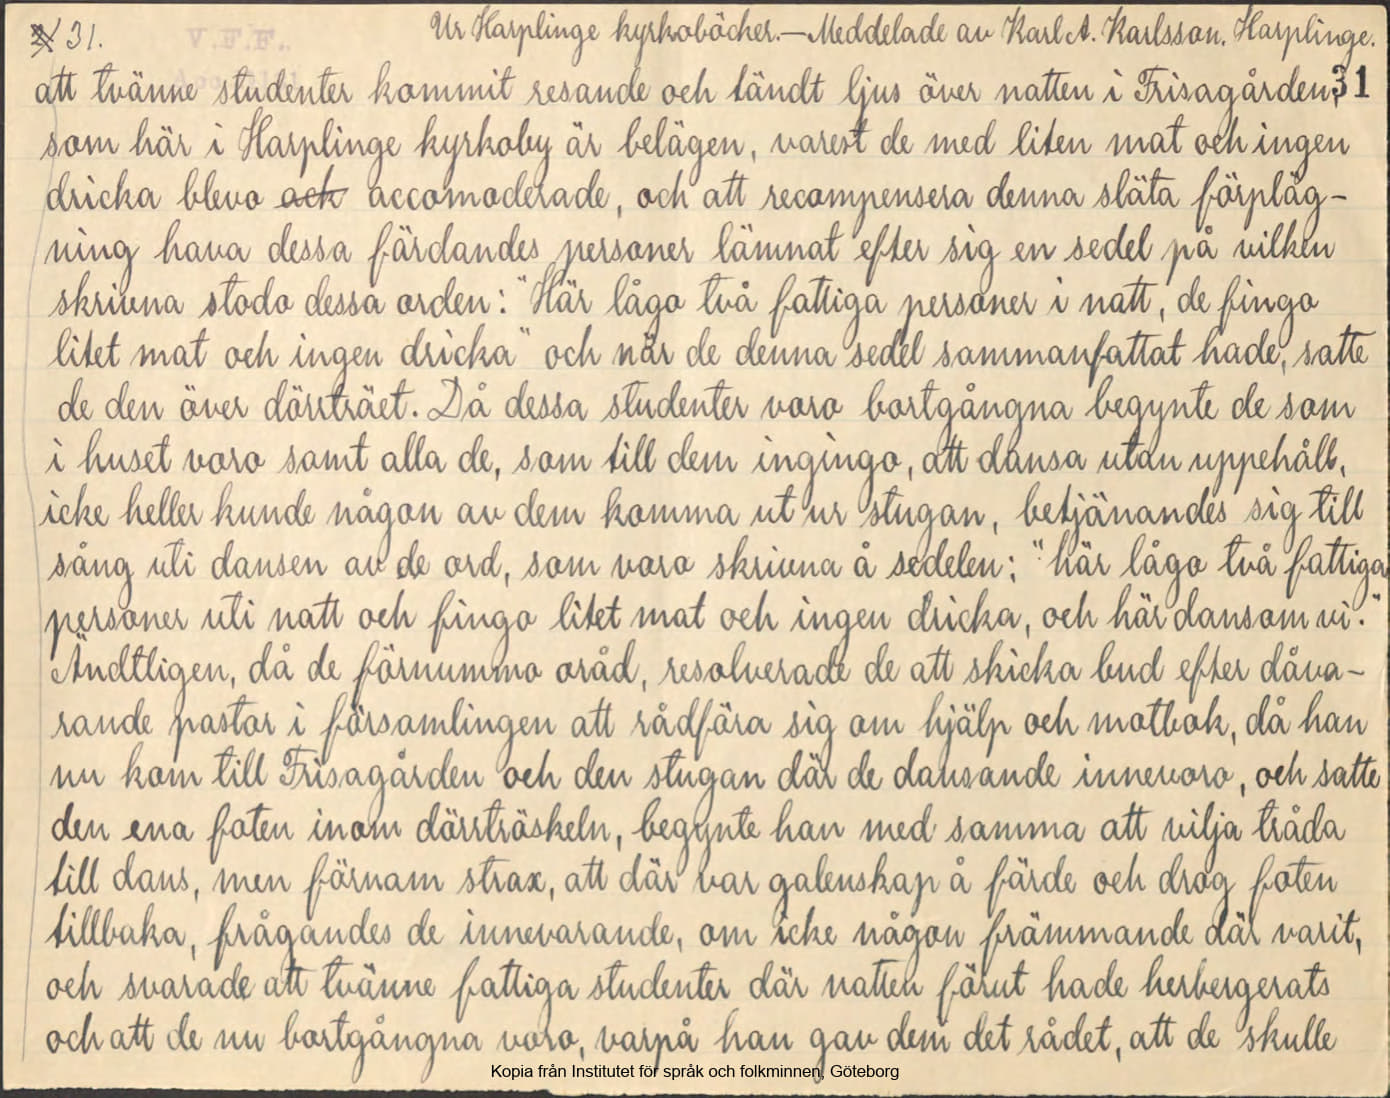 31.
V.F.F.
Ur Harplinge kyrkoböcker.—Meddelade av Karl A. Karlsson, Harplinge.
31
att tvänne studenter kommit resande och tändt ljus över natten i Frisagården,
som här i Harplinge kyrkoby är belägen, varest de med liten mat och ingen
dricka blevo ack accomoderade, och att recompensera denna släta förpläg-
ning hava dessa färdandes personer lämnat efter sig en sedel på vilken
skrivna stodo dessa orden: "Här lågo två fattiga personer i natt, de fingo
litet mat och ingen dricka" och när de denna sedel sammanfattat hade, satte
de den över dörrträet. Då dessa studenter voro bortgångna begynte de som
i huset voro samt alla de, som till dem ingingo, att dansa utan uppehåll,
icke heller kunde någon av dem komma ut ur stugan, betjänandes sig till
sång uti dansen av de ord, som voro skrivna å sedelen; "här lågo två fattiga
personer uti natt och fingo litet mat och ingen dricka, och här dansom vi."
Ändtligen, då de förnummo oråd, resolverade de att skicka bud efter dåva-
rande pastor i församlingen att rådföra sig om hjälp och motbok, då han
nu kom till Frisagården och den stugan där de dansande innevoro, och satte
den ena foten inom dörrtröskeln, begynte han med samma att vilja tråda
till dans, men förnam strax, att där var galenskap å färde och drog foten
tillbaka, frågandes de innevarande, om icke någon främmande där varit,
och svarade att tvänne fattiga studenter där natten förut hade herbergerats
och att de nu bortgångna voro, varpå han gav dem det rådet, att de skulle
Kopia från Institutet för språk och folkminnen, Göteborg